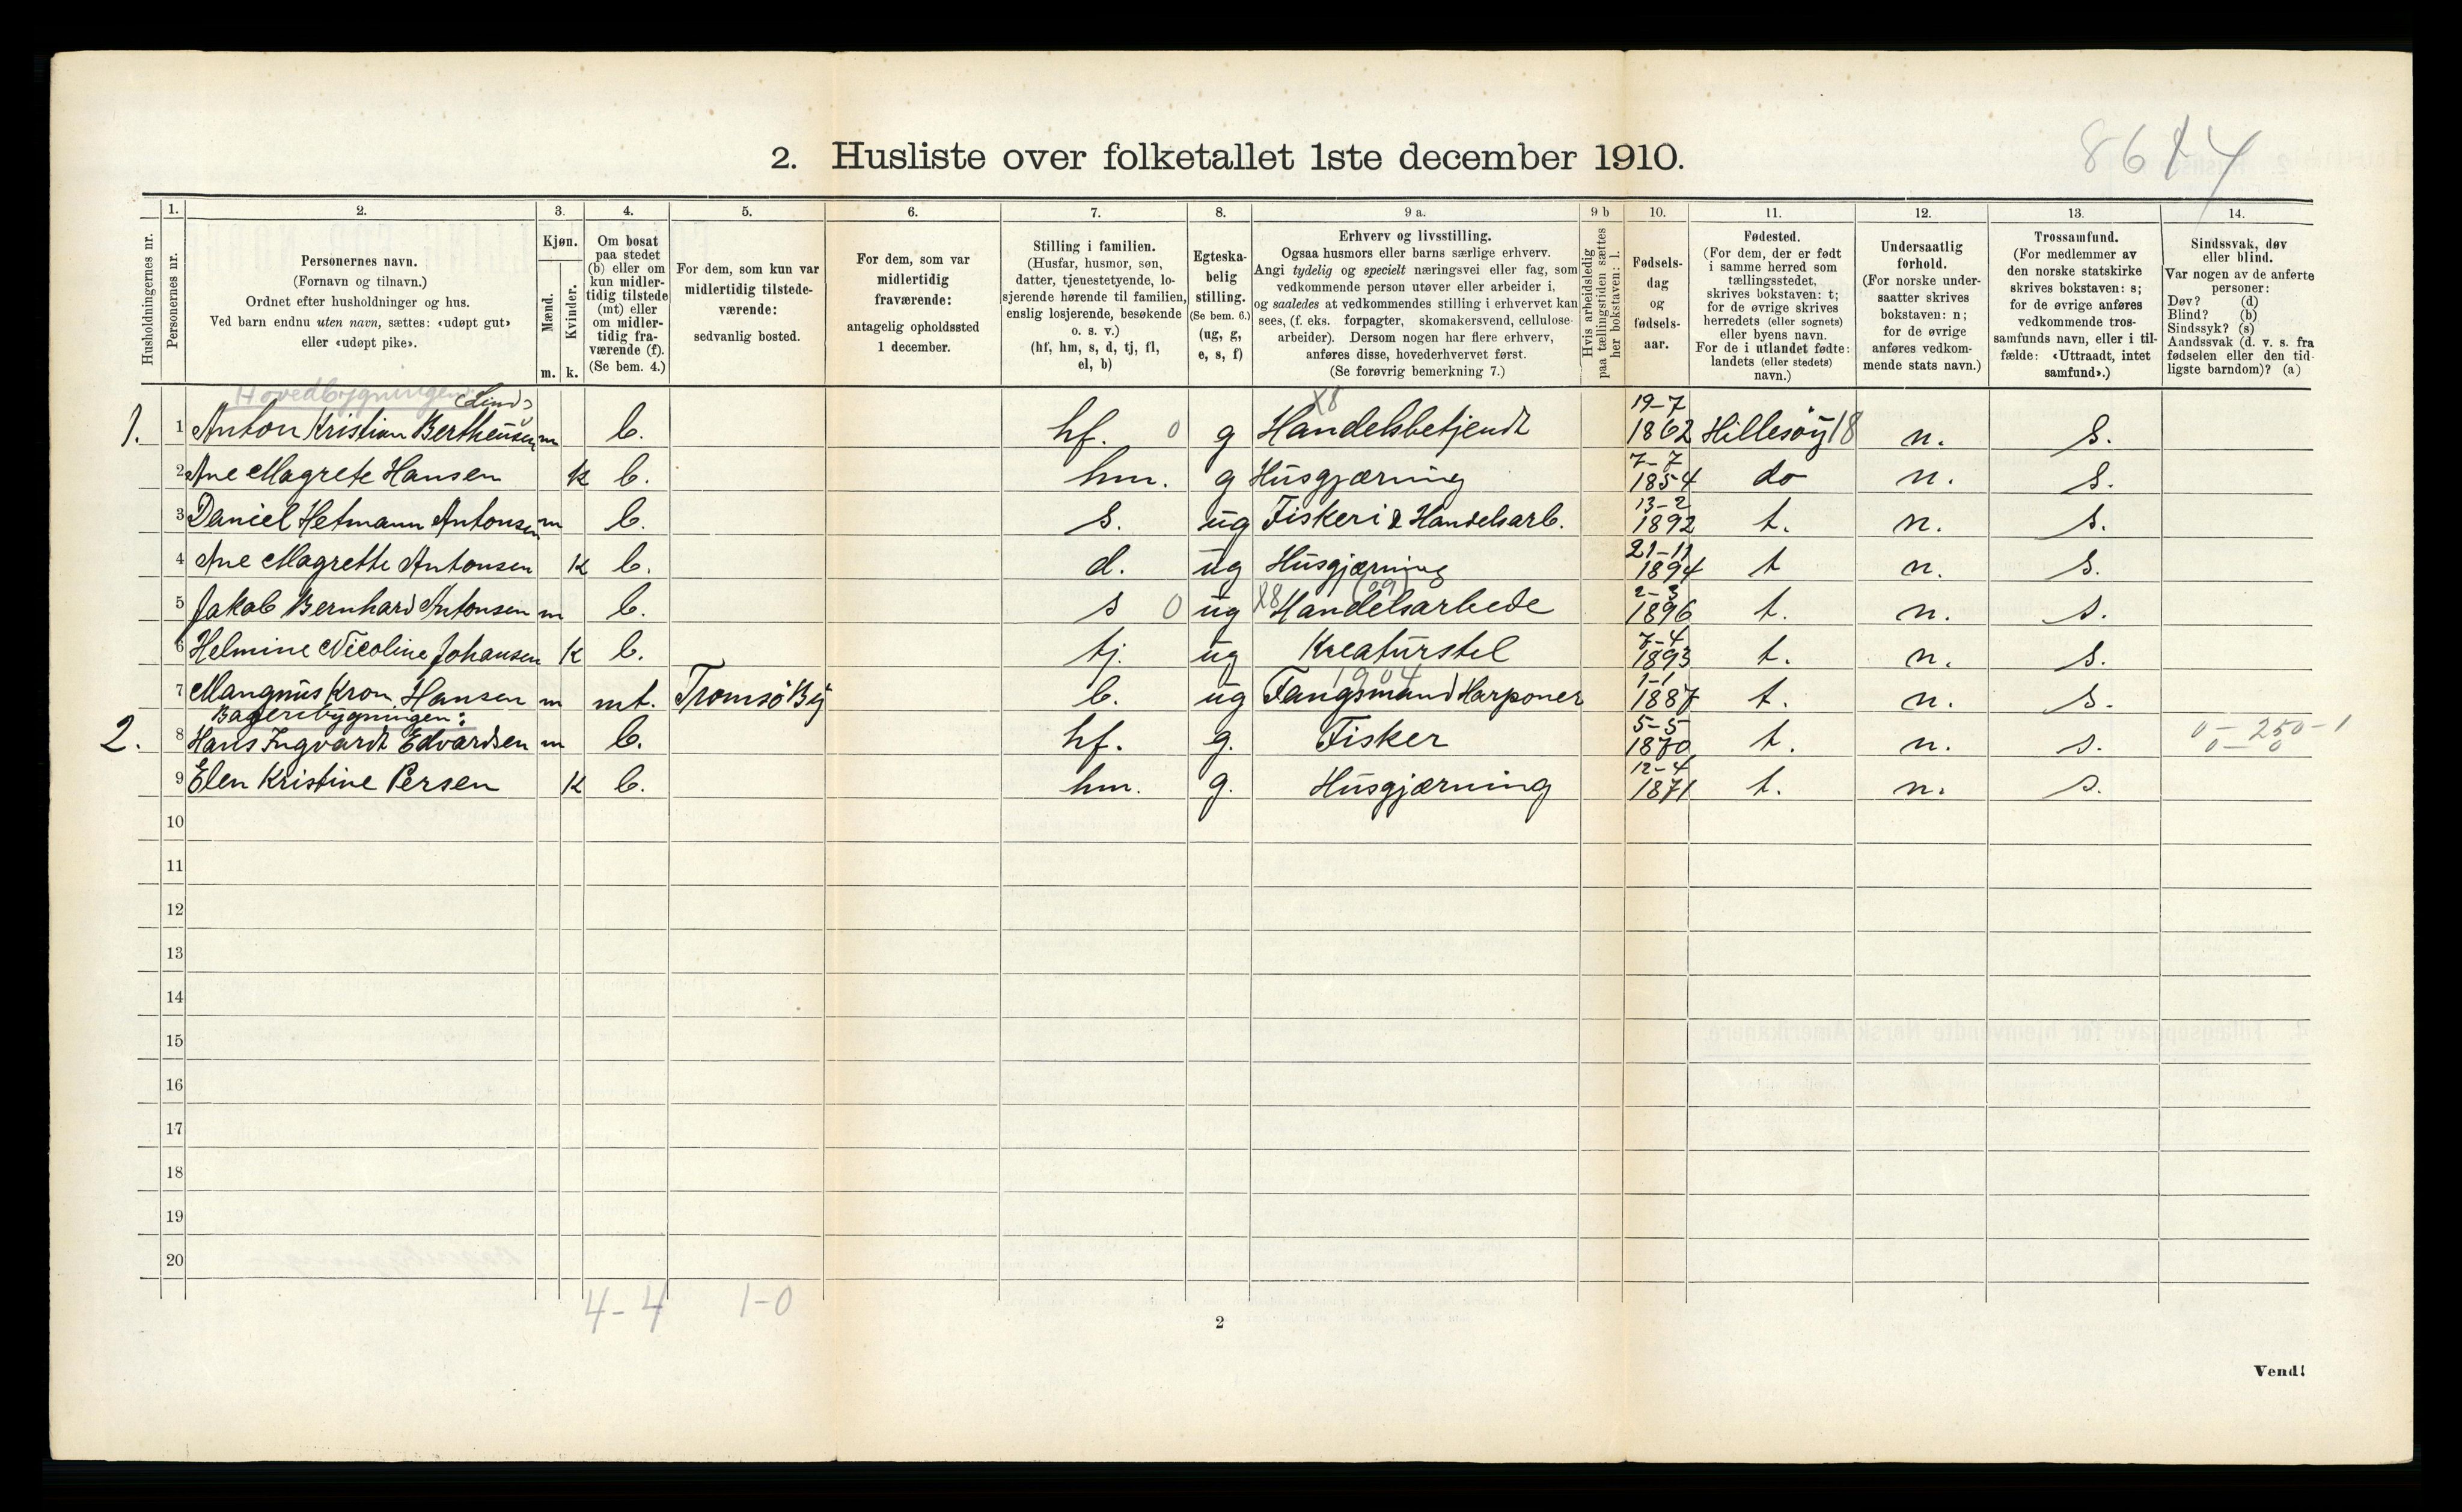 2. Husliste over folketallet 1ste december 1910.
Husholdningernes nr.
1.
Personernes nr.
2.
Personernes navn.
(Fornavn og tilnavn.)
Ordnet efter husholdninger og hus.
Ved barn endnu uten navn, sættes: «udøpt gut»
eller «udøpt pike».
3.
Kjøn.
Mænd.
Kvinder.
m. k.
4.
Om bosat
paa stedet
(b) eller om
kun midler-
tidig tilstede
(mt) eller
om midler-
tidig fra-
værende (f).
(Se bem. 4.)
5.
For dem, som kun var
midlertidig tilstede-
værende:
sedvanlig bosted.
6.
For dem, som var
midlertidig
fraværende:
antagelig opholdssted
1 december.
7.
Stilling i familien.
(Husfar, husmor, søn,
datter, tjenestetyende, lo-
sjerende hørende til familien,
enslig losjerende, besøkende
o. s. v.)
(hf, hm, s, d, tj, fl,
el, b)
8.
Egteska-
belig
stilling.
(Se bem. 6.)
(ug, g,
e, s, f)
9 a.
Erhverv og livsstilling.
Ogsaa husmors eller barns særlige erhverv.
Angi tydelig og specielt næringsvei eller fag, som
vedkommende person utøver eller arbeider i,
og saaledes at vedkommendes stilling i erhvervet kan
sees, (f. eks. forpagter, skomakersvend, cellulose-
arbeider). Dersom nogen har flere erhverv,
anføres disse, hovederhvervet først.
(Se forøvrig bemerkning 7.)
9 b
Hvis arbeidsledig
paa tællingstiden sættes
her bokstaven: l.
10.
Fødsels-
dag
og
fødsels-
aar.
11.
Fødested.
(For dem, der er født
i samme herred som
tællingsstedet,
skrives bokstaven: t;
for de øvrige skrives
herredets (eller sognets)
eller byens navn.
For de i utlandet fødte:
landets (eller stedets)
navn.)
12.
Undersaatlig
forhold.
(For norske under-
saatter skrives
bokstaven: n;
for de øvrige
anføres vedkom-
mende stats navn.)
13.
Trossamfund.
(For medlemmer av
den norske statskirke
skrives bokstaven: s;
for de øvrige anføres
vedkommende tros-
samfunds navn, eller i til-
fælde: «Uttraadt, intet
samfund».)
14.
Sindssvak, døv
eller blind.
Var nogen av de anførte
personer:
Døv? (d)
Blind? (b)
Sindssyk? (s)
Aandssvak (d. v. s. fra
fødselen eller den tid-
ligste barndom)? (a)
Hovedbygningen (Lind)
1. 1 Anton Kristian Bertheusen m b. hf. 0 g X8 Handelsbetjendt 19-7 1862 Hillesøy 18 n. s.
2 Ane Magrete Hansen k b. hm. g Husgjærning 7-7 1854 do n. s.
3 Daniel Hetmann Antonsen m b. s. ug Fiskeri & Handelsarb. 13-2 1892 t. n. s.
4 Ane Magrethe Antonsen k b. d. ug Husgjærning 21-11 1894 t n. s.
5 Jakob Bernhard Antonsen m b. s 0 ug X8 Handelsarbede 2-3 1896 t. n. s.
6 Helmine Nicoline Johansen k b. tj. ug Kreaturstel 7-4 1893 t. n. s.
7 Mangnus Kron. Hansen m mt. Tromsø By b. ug 1904 Fangsmand Harponer 1-1 1887 t. n. s.
Bageribygningen:
2. 8 Hans Ingvardt Edvardsen m b. hf. g. Fisker 5-5 1870 t. n. s. 0 - 250 - 1
0 - 0
9 Elen Kristine Persen k b. hm. g. Husgjærning 12-4 1871 t. n. s.
10
11
12
13
14
15
16
17
18
19
20
4-4 1-0
2
Vend!